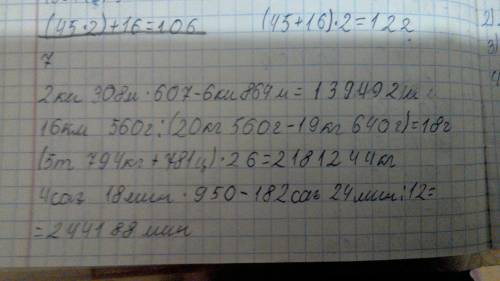 (45·2)+16=106 (45+16)·2=122
7
2км 308м·607-6км 864м=1394092м
16км 560г:(20кг 560г-19кг 640г)=18г
(5т 794кг+781ц)·26=2181244кг
4саг 18мин·950-182саг 24мин:12=
=244188мин
2)
3)